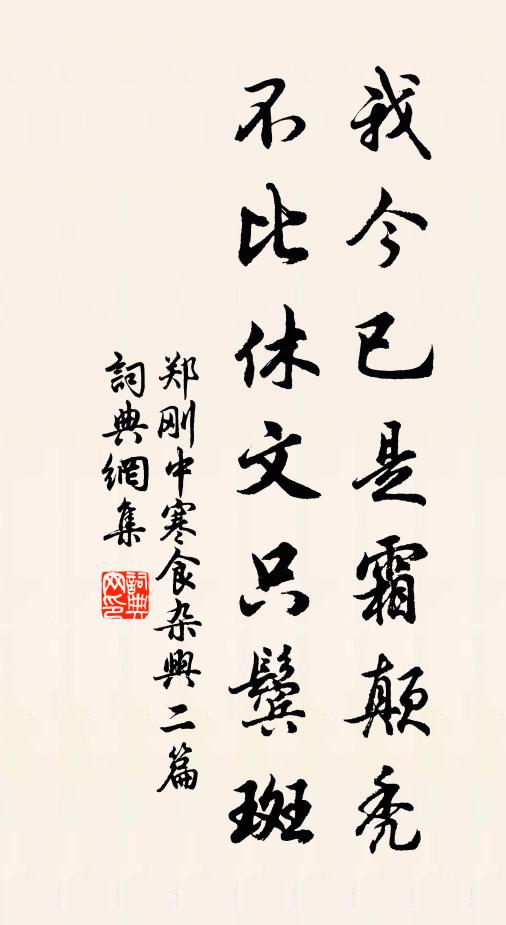 我今已是霜颠秃
不比休文只鬓斑
郑刚中寒食杂興二篇
詞典網集
詞典网印